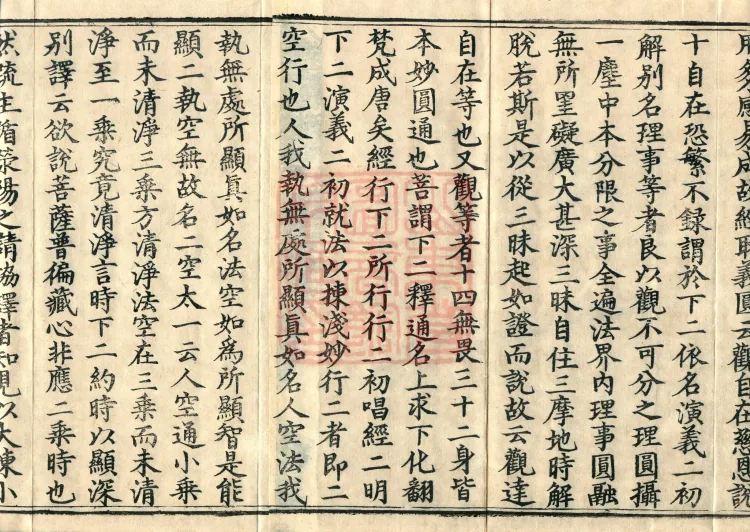 十自在恐繁不録謂於下二依名演義二初
解別名理事等者良以觀不可分之理圓攝
一塵中本分限之事全遍法界内理事圓融
無所罣礙廣大甚深三昧自住三摩地時解
脫若斯是以從三昧起如證而說故云觀達
自在等也又觀等者十四無畏三十二身皆
本妙圓通也菩謂下二釋通名上求下化翻
梵成唐矣經行下二所行行二初唱經二明
下二演義二初就法以揀淺妙行二者即二
空行也人我執無處所顯真如名人空法我
執無處所顯眞如名法空如爲所顯智是能
顯二執空無故名二空太一云人空通小乘
而未清淨三乘方清淨法空在三乘而未清
淨至一乘究竟清淨言時下二約時以顯深
別譯云欲說菩薩普徧藏心非應二乘時也